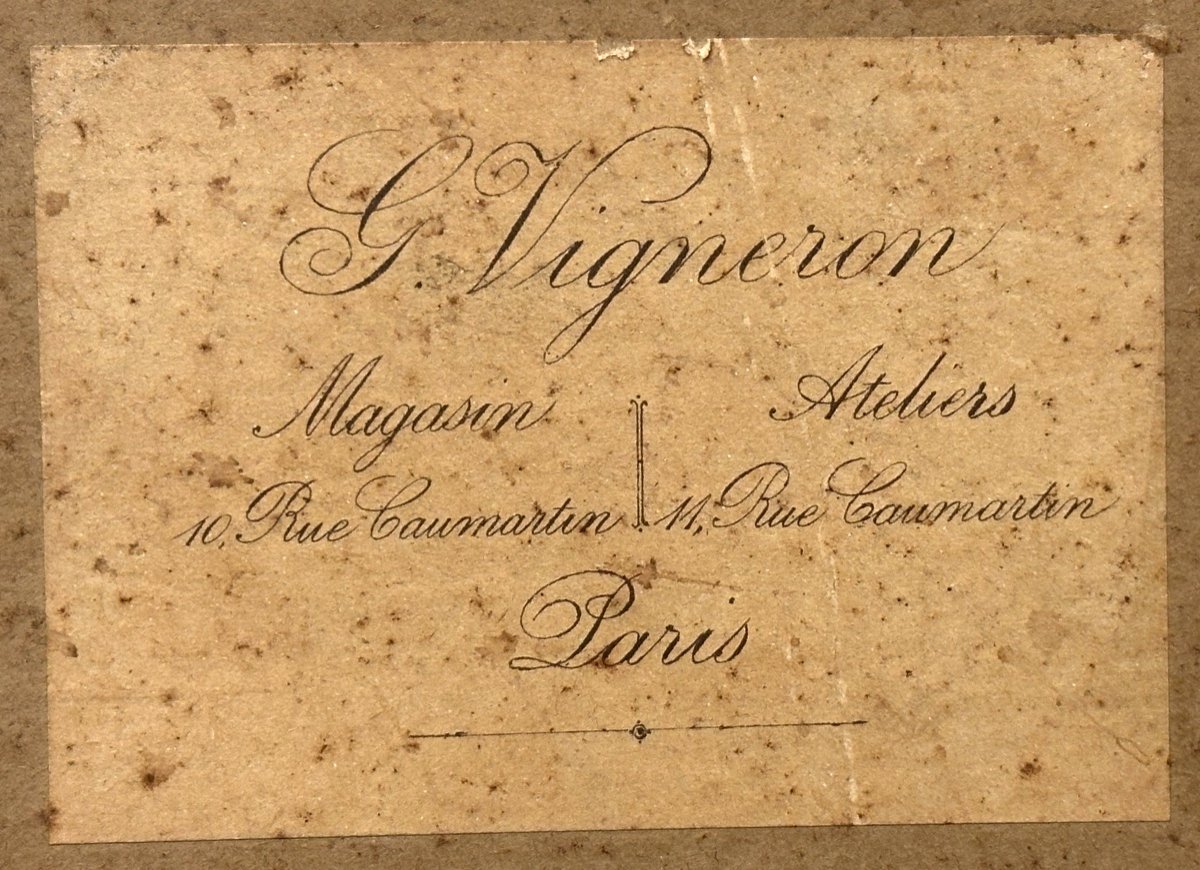 G. Vigneron
Magasin
10, Rue Caumartin
Ateliers
11, Rue Caumartin
Paris